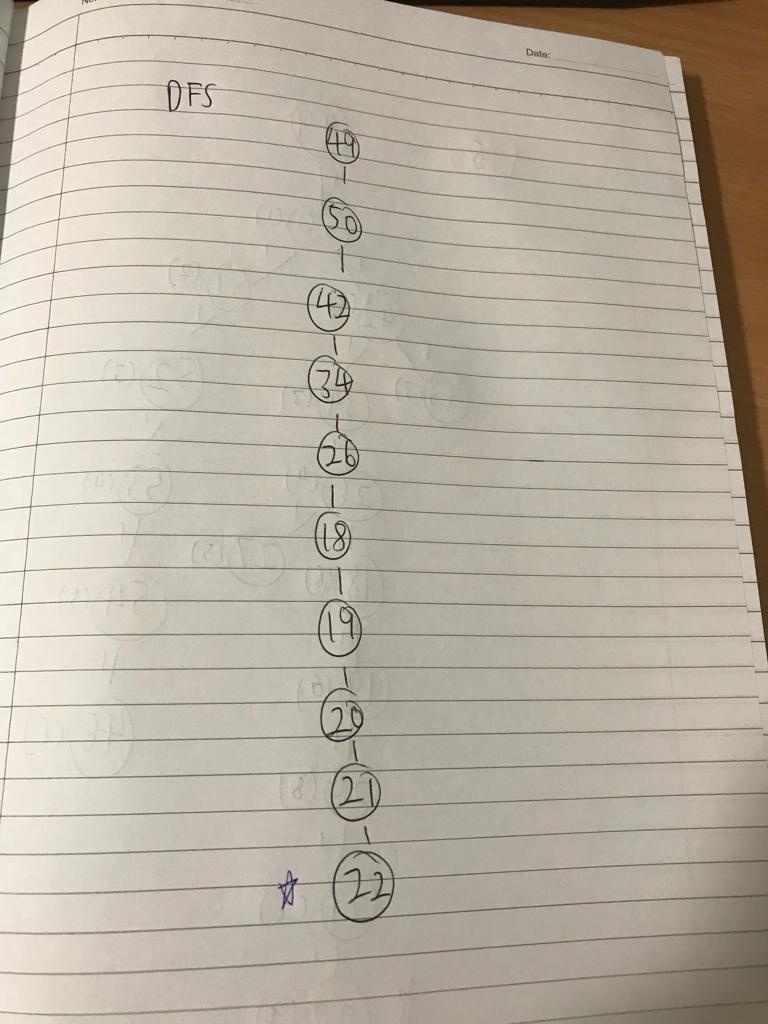 Date:
DFS
49
50
42
34
26
18
19
20
21
22